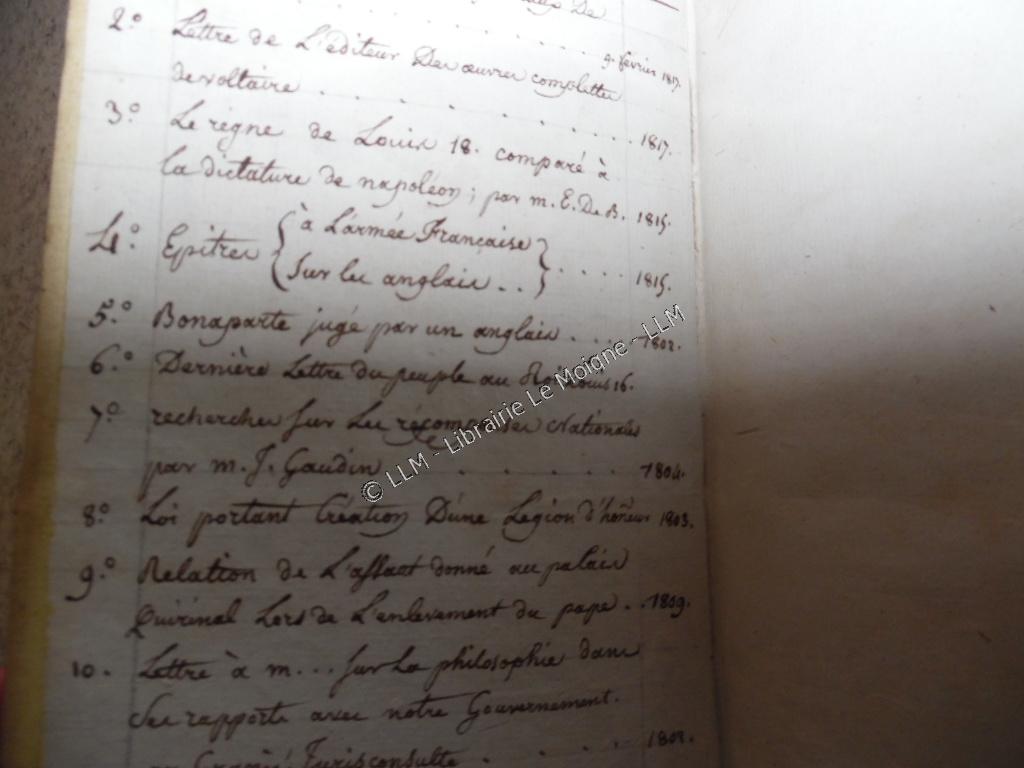 De
9. février 1817.
2.° Lettre de L'éditeur Des œuvres complettes
de voltaire . . . . . . . . . . 1817.
3.° Le règne de Louis 18. comparé à
la dictature de napoléon ; par m. E. De B. 1815.
4.° Epitres { à L'armée Française
Sur les anglais . . } . . . . 1815.
5.° Bonaparte jugé par un anglais . . . . 1802.
6.° Dernière Lettre du peuple au Roi Louis 16.
7.° recherches sur Les récompenses Nationales
par m. J. Gaudin . . . . . . . 1804.
8.° Loi portant Création D'une Légion d'hoñeur 1803.
9.° Relation de L'assaut donné au palais
Quirinal Lors de L'enlevement du pape . . 1809.
10. Lettre à m... sur La philosophie dans
Ses rapports avec notre Gouvernement.
Jurisconsulte . . . . . 1802.
© LLM - Librairie Le Moigne - LLM